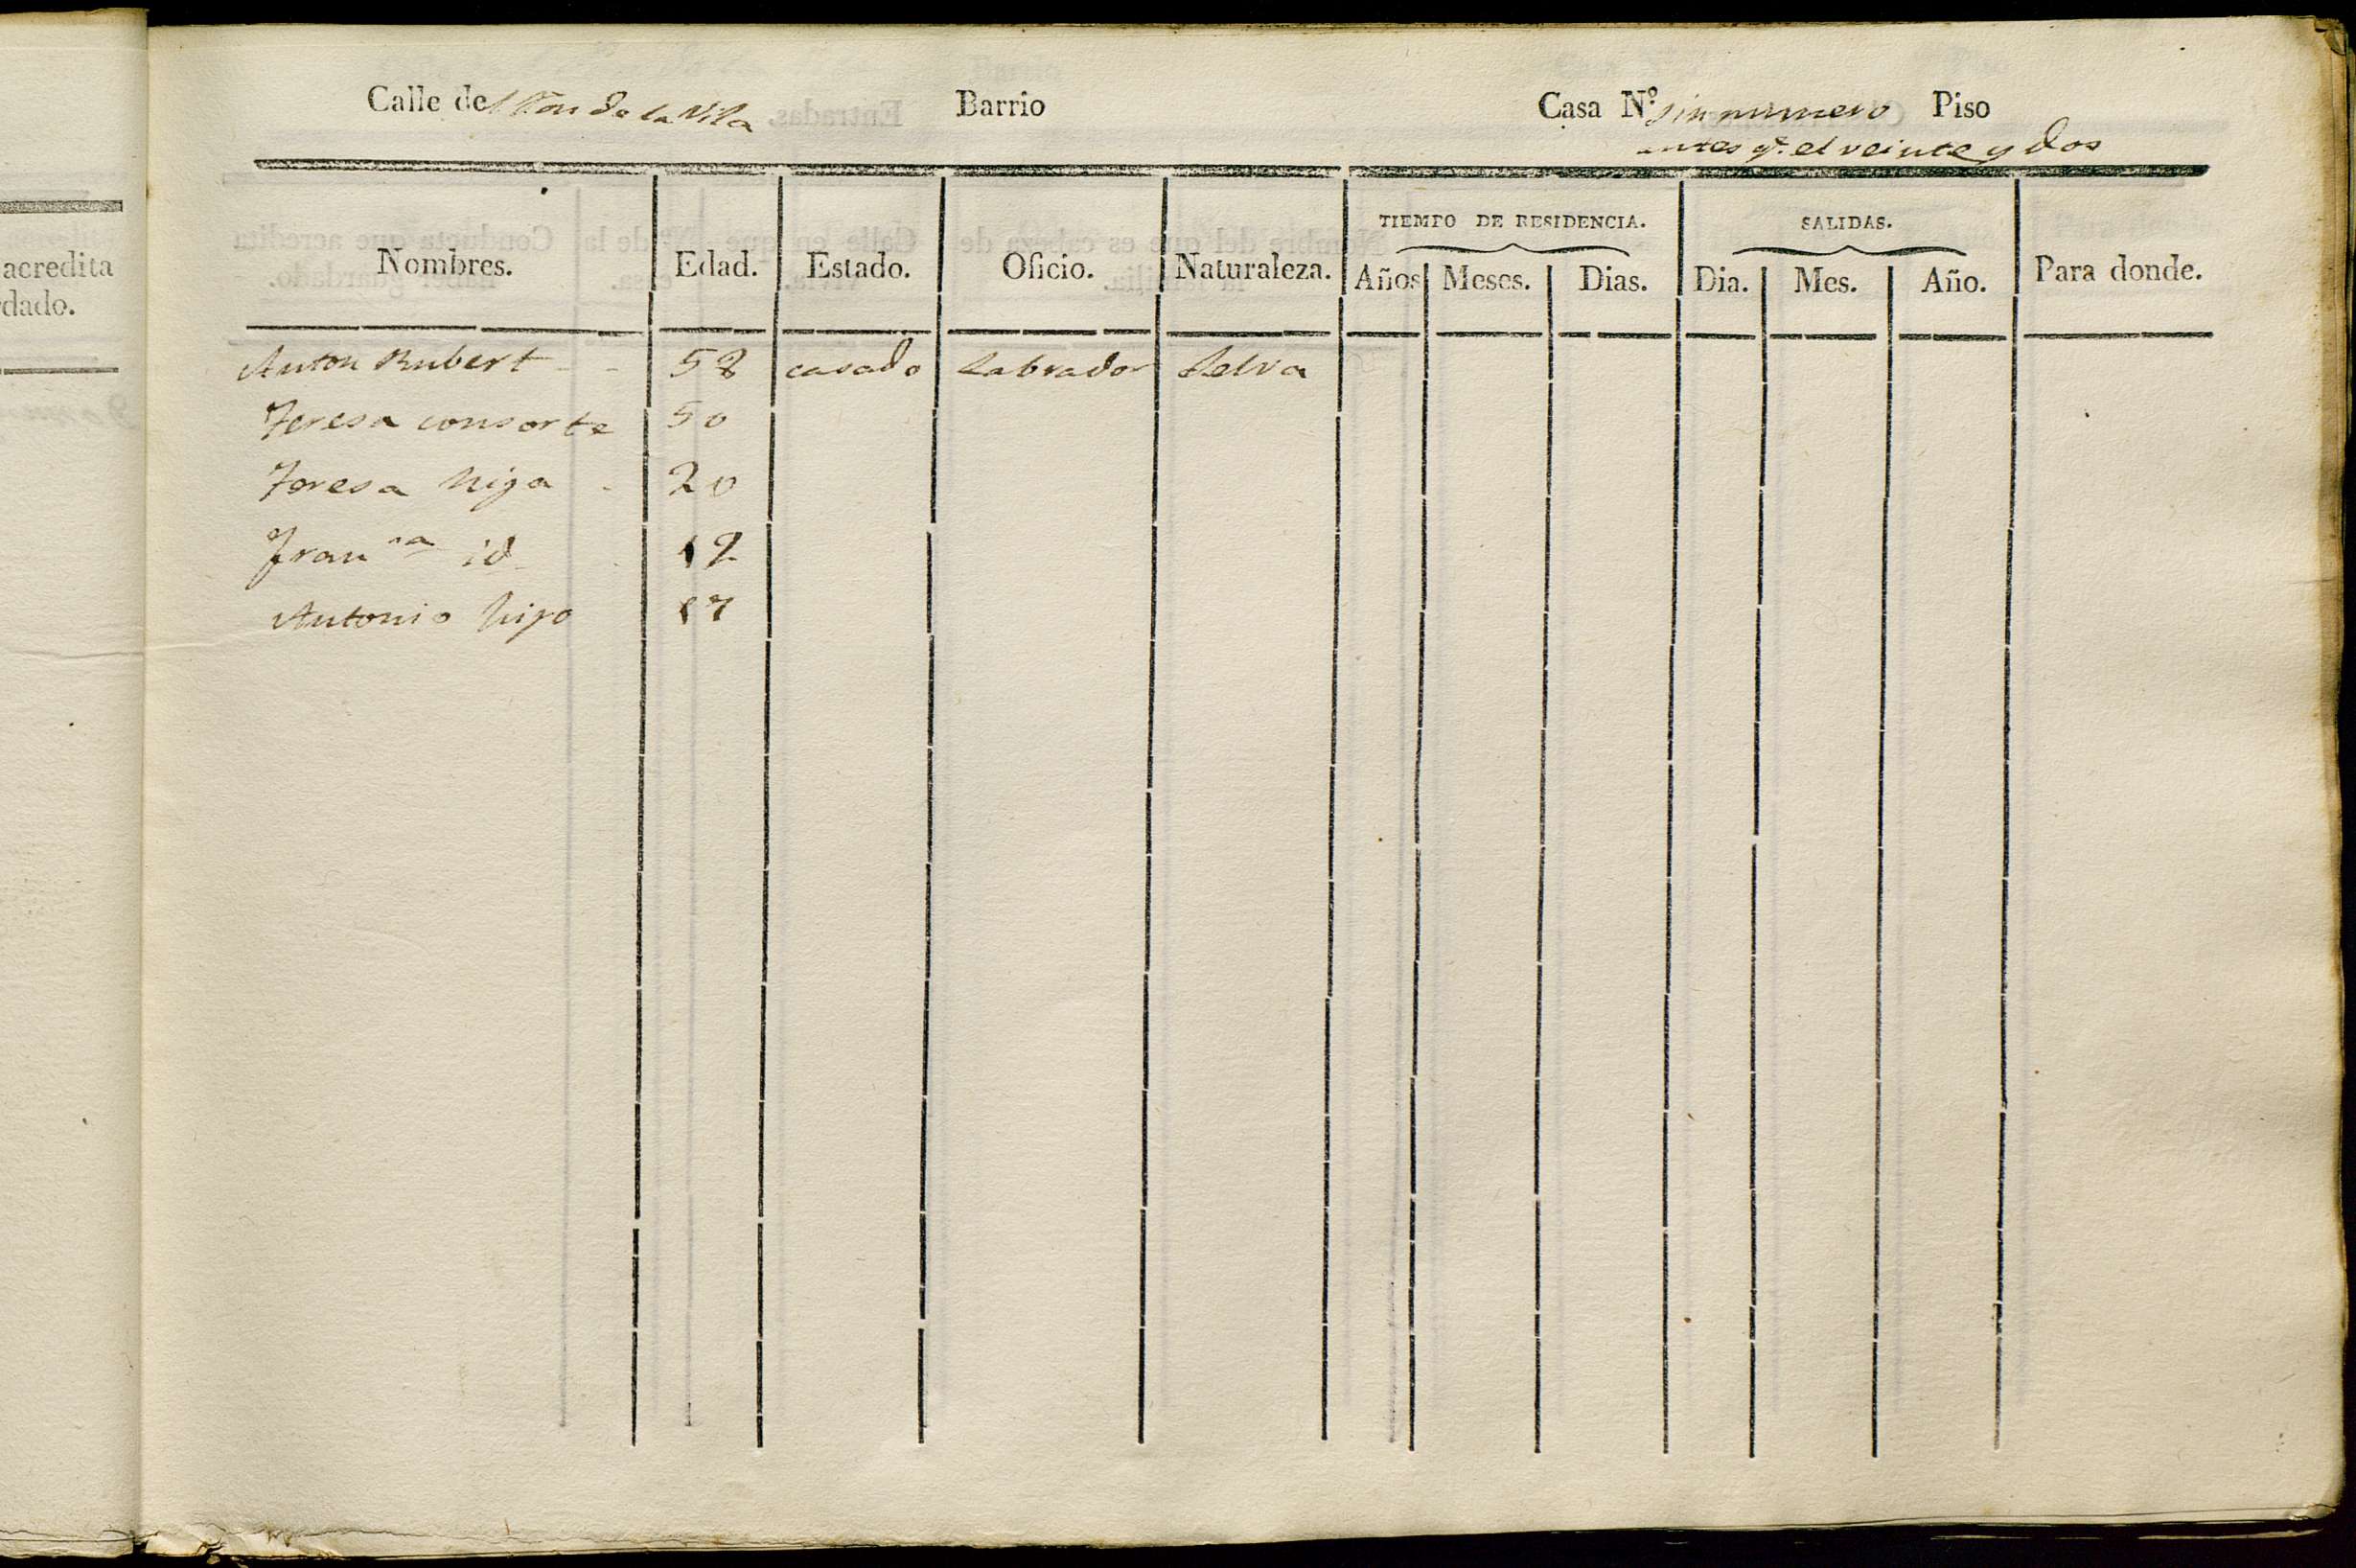 acredita
dado.
Calle del Fou de la Vila Barrio Casa N.º sin numero Piso
antes q.e el veinte y dos
TIEMPO DE RESIDENCIA. SALIDAS.
Nombres. Edad. Estado. Oficio. Naturaleza. Años Meses. Dias. Dia. Mes. Año. Para donde.
Anton Rubert 58 casado Labrador Selva
Teresa consorte 50
Teresa hija 20
Fran.ca id 12
Antonio hijo 17